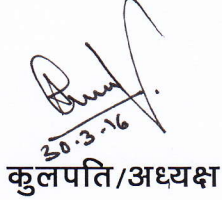 30.3-16
कुलपति/अध्यक्ष